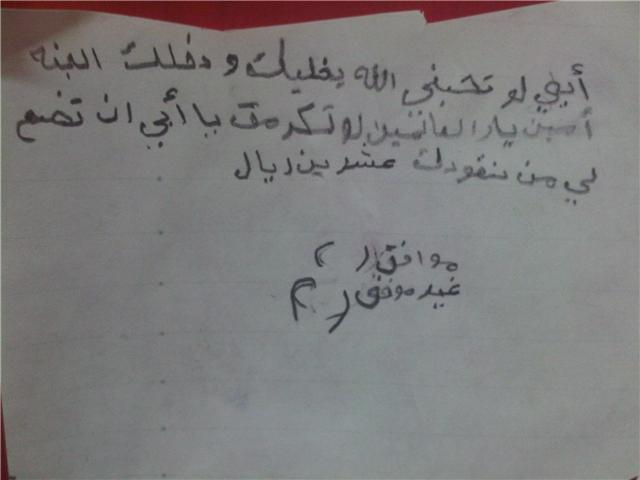 أبي لو تحبني الله يخليك ودخلك الجنه
أمين يارالعالمين لو تكرمت يا أبي ان تضع
لي من نقودك عشرين ريال
موافق ( )
غير موفق ( )